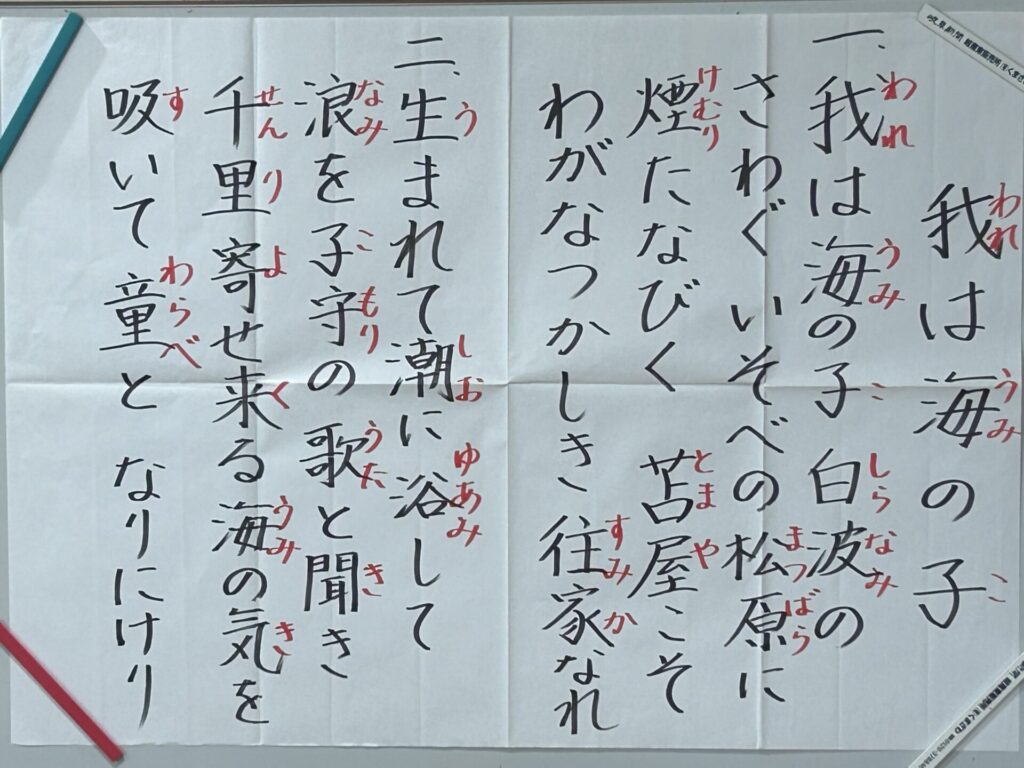 我は海の子
一、我は海の子 白波の
さわぐいそべの松原に
煙たなびく 苫屋こそ
わがなつかしき 往家なれ
二、生まれて潮に 浴して
浪を子守の 歌と聞き
千里寄せ来る 海の気を
吸いて童と なりにけり
われ うみ こ
われ うみ こ しら なみ
まつ ばら
けむり とま や
すみ か
う しお ゆあみ
なみ こ もり うた き
せん り よ く うみ き
す わらべ
岐阜新聞